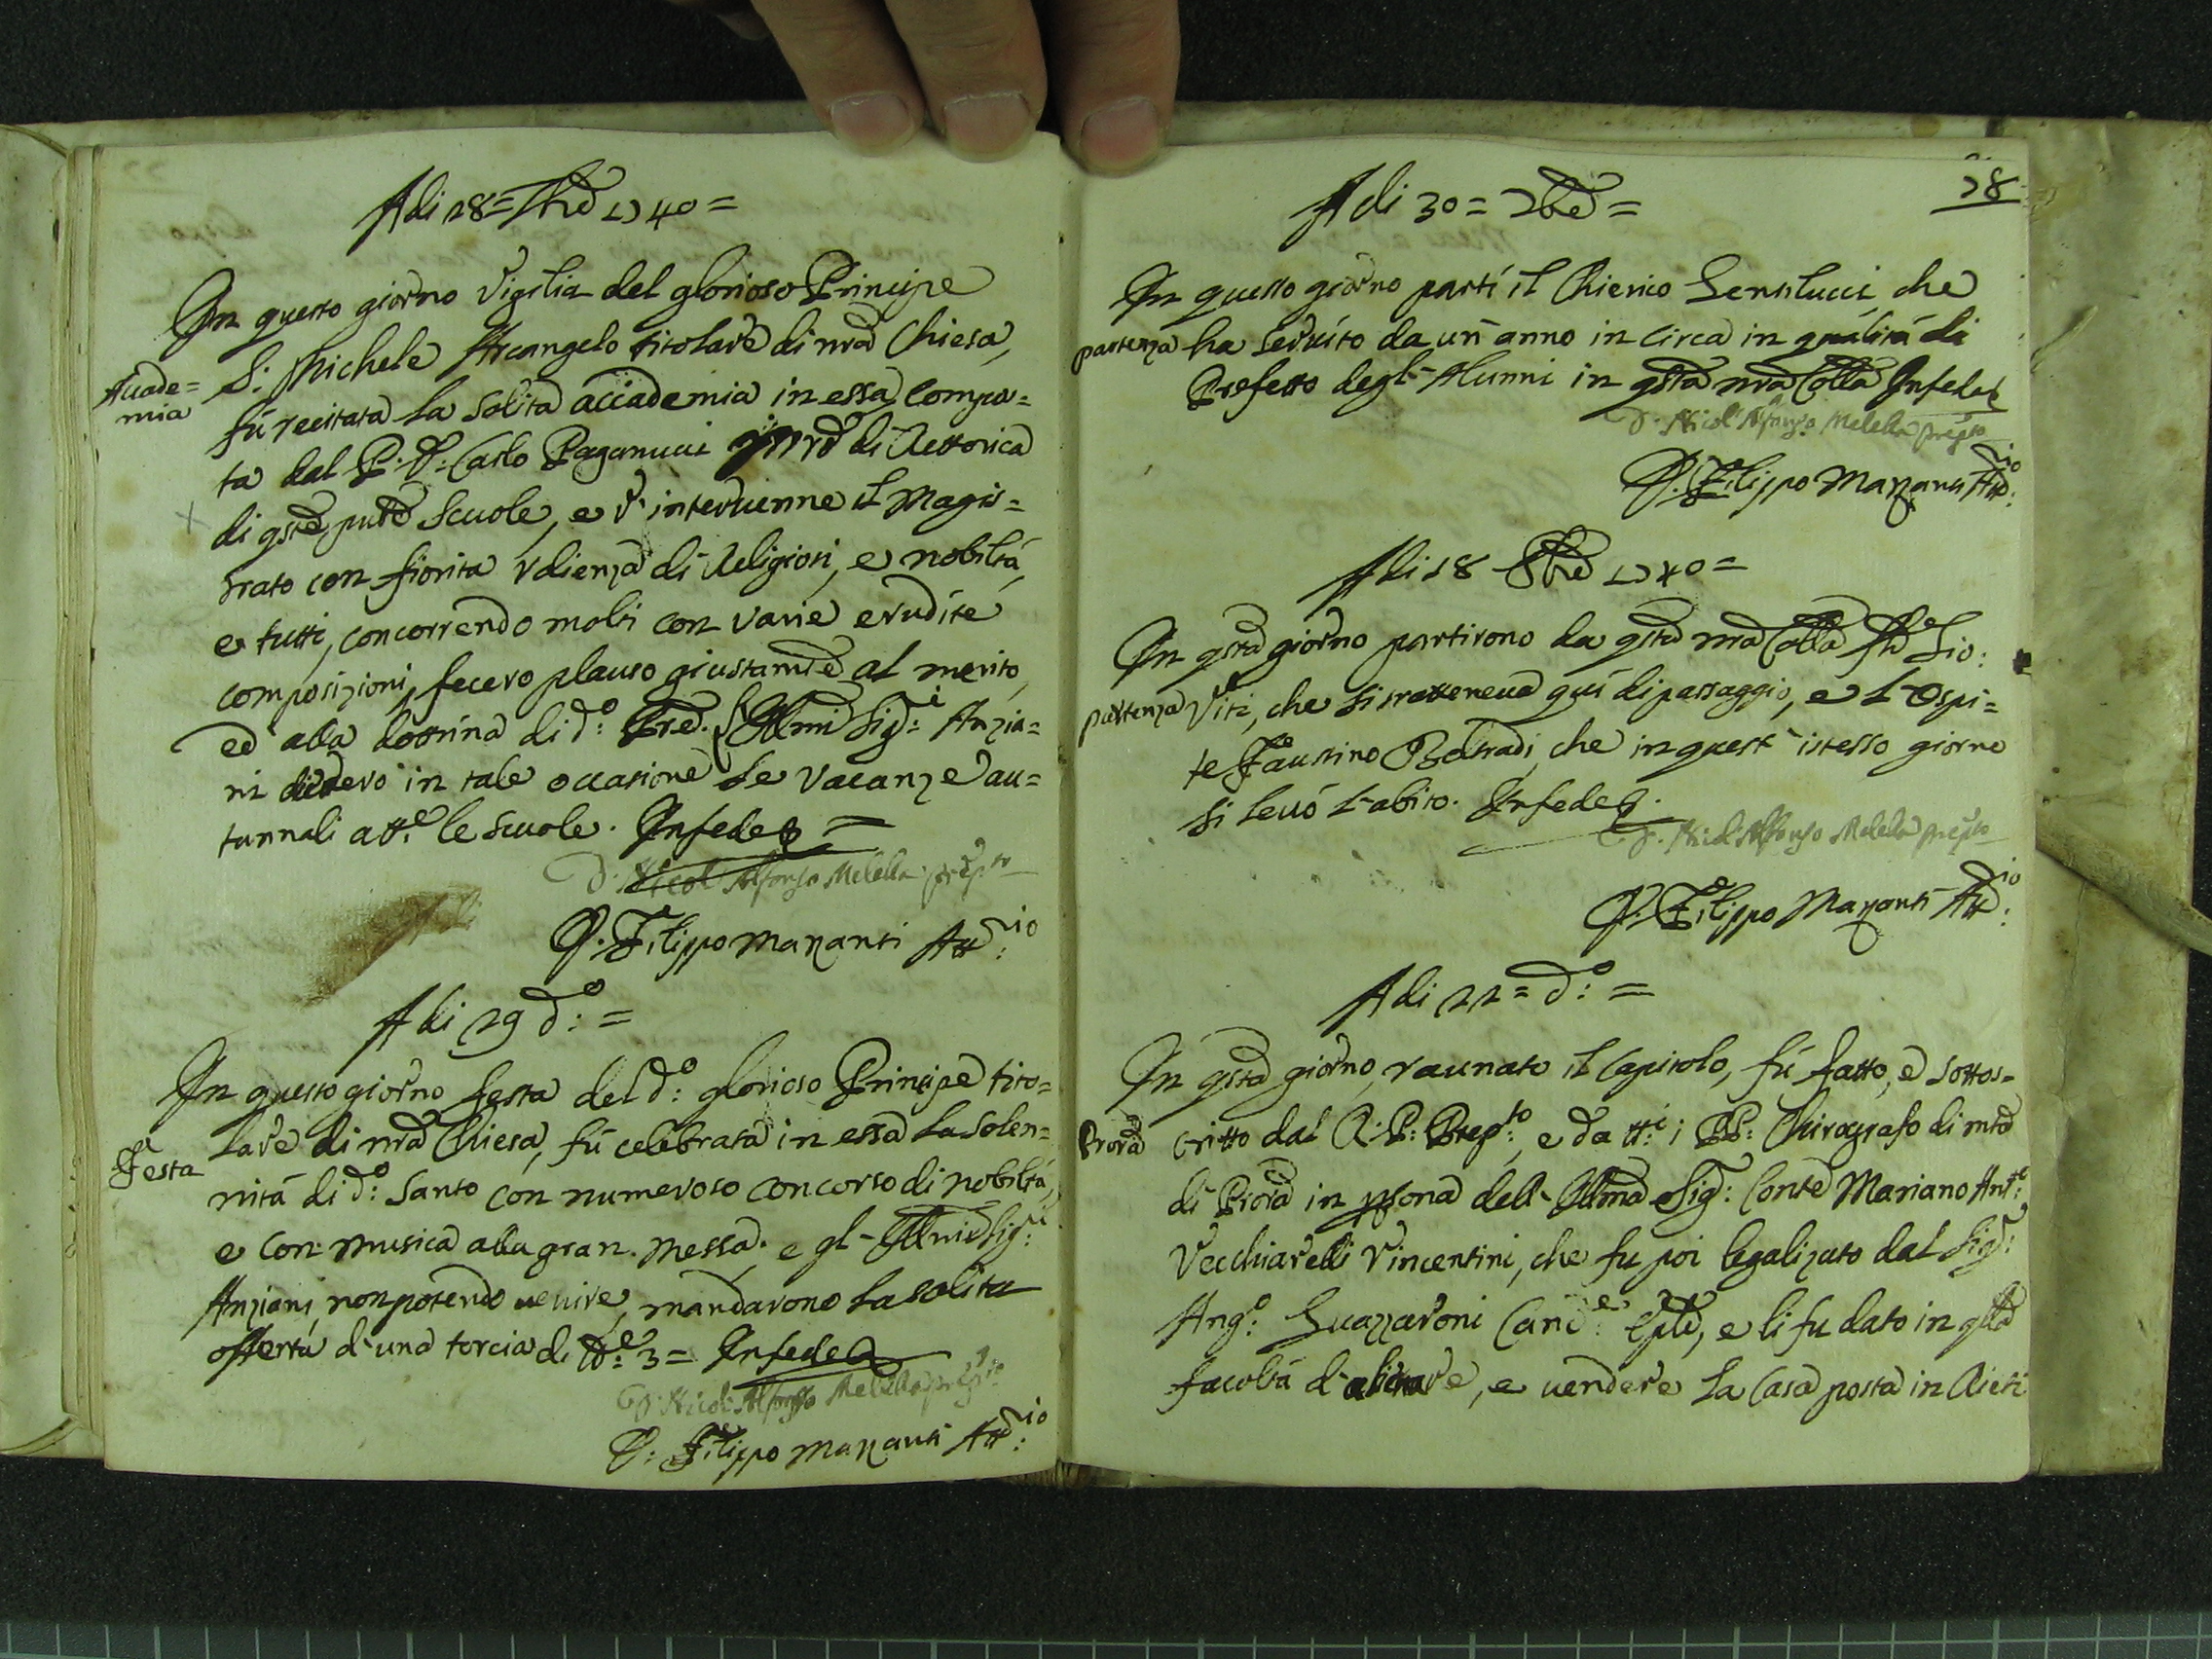 Adi 28 = 7bre 1740 =
In questo giorno Vigilia del glorioso Principe
S: Michele Arcangelo titolare di nra Chiesa,
Accade=
mia
fú recitata la solita accademia in essa, compo=
ta dal P: D: Carlo Paganucci Mro di Rettorica
di qste pube Scuole, e v' intervenne il Magis=
trato con fiorita Vdienza di Religiosi, e nobiltá,
e tutti, concorrendo molti con varie erudite
composizioni, fecero plauso giustamte al merito,
ed alla dottrina di do: Pre. Gl Illmi Sigri: Anzia=
ni diedero in tale occasione le vacanze au=
tunnali a tte le scuole. In fede &
D. Nicol' Alfonso Melella prepto
D. Filippo Mazanti Attrio:
Adi 29 do: =
In questo giorno festa del do: glorioso Principe tito=
lare di nra Chiesa, fú celebrata in essa la solen=
Festa
nitá di do: Santo con numeroso concorso di nobiltá,
e con musica alla gran messa. e gl' Illmi Sigri:
Anziani, non potendo venire, mandarono la solita
offerta d'una torcia di tte: 3 = In fede &
D. Nicol' Alfonso Melella prepto
D: Filippo Mazanti Attrio:
28
Adi 30 = 7bre =
In questo giorno partí il Chierico Sensilucci, che
partenza
ha servito da un anno in circa in qualitá di
Prefetto degl' Alunni in qsto nro Collo In fede &
D. Nicol' Alfonso Melella prepto
D. Filippo Mazanti Attrio:
Adi 18 8bre 1740 =
In qsto giorno partirono da qsto nro Collo il Fre Gio:
partenza
Viti, che si tratteneva quí di passaggio, e l' Ospi=
te Faustino Boltradi, che in quest' istesso giorno
si levó l' abito. In fede &.
D. Nicol' Alfonso Melella prepto
D. Filippo Mazanti Attrio:
Adi 22 = do: =
In qsto giorno, raunato il Capitolo, fú fatto, e sottos=
Procra
critto dal R: P: Prepto:, e da tti: i PP: Chirografo di mto
di Procra in psona dell' Illmo Sigr: Conte Mariano Anto:
Vecchiarelli Vincentini, che fu poi legalizato dal Sigr:
Ango: Guazzaroni Cance: Eple, e li fu dato in qllo
facoltá d' alienare, e vendere la Casa posta in Rieti